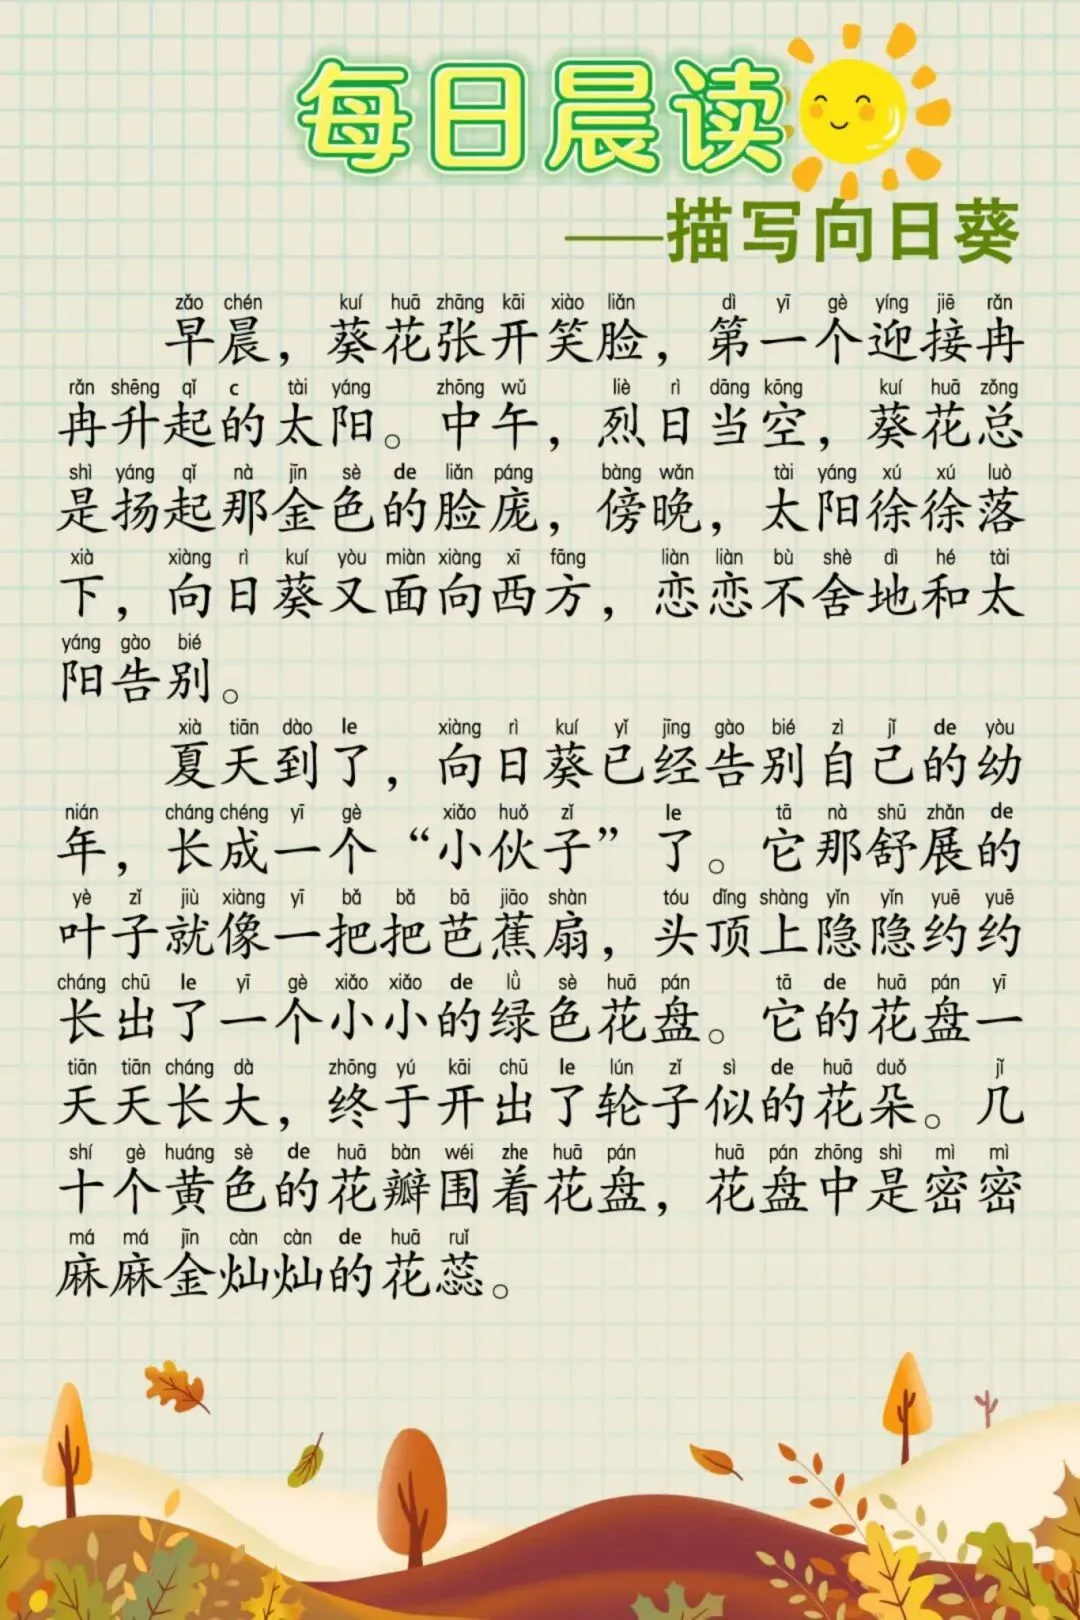 每日晨读
——描写向日葵
zǎo chén kuí huā zhāng kāi xiào liǎn dì yī gè yíng jiē rǎn
早晨，葵花张开笑脸，第一个迎接冉
rǎn shēng qǐ c tài yáng zhōng wǔ liè rì dāng kōng kuí huā zǒng
冉升起的太阳。中午，烈日当空，葵花总
shì yáng qǐ nà jīn sè de liǎn páng bàng wǎn tài yáng xú xú luò
是扬起那金色的脸庞，傍晚，太阳徐徐落
xià xiàng rì kuí yòu miàn xiàng xī fāng liàn liàn bù shè dì hé tài
下，向日葵又面向西方，恋恋不舍地和太
yáng gào bié
阳告别。
xià tiān dào le xiàng rì kuí yǐ jīng gào bié zì jǐ de yòu
夏天到了，向日葵已经告别自己的幼
nián cháng chéng yī gè xiǎo huǒ zǐ le tā nà shū zhǎn de
年，长成一个“小伙子”了。它那舒展的
yè zǐ jiù xiàng yī bǎ bǎ bā jiāo shàn tóu dǐng shàng yǐn yǐn yuē yuē
叶子就像一把把芭蕉扇，头顶上隐隐约约
cháng chū le yī gè xiǎo xiǎo de lǜ sè huā pán tā de huā pán yī
长出了一个小小的绿色花盘。它的花盘一
tiān tiān cháng dà zhōng yú kāi chū le lún zǐ sì de huā duǒ jǐ
天天长大，终于开出了轮子似的花朵。几
shí gè huáng sè de huā bàn wéi zhe huā pán huā pán zhōng shì mì mì
十个黄色的花瓣围着花盘，花盘中是密密
má má jīn càn càn de huā ruǐ
麻麻金灿灿的花蕊。